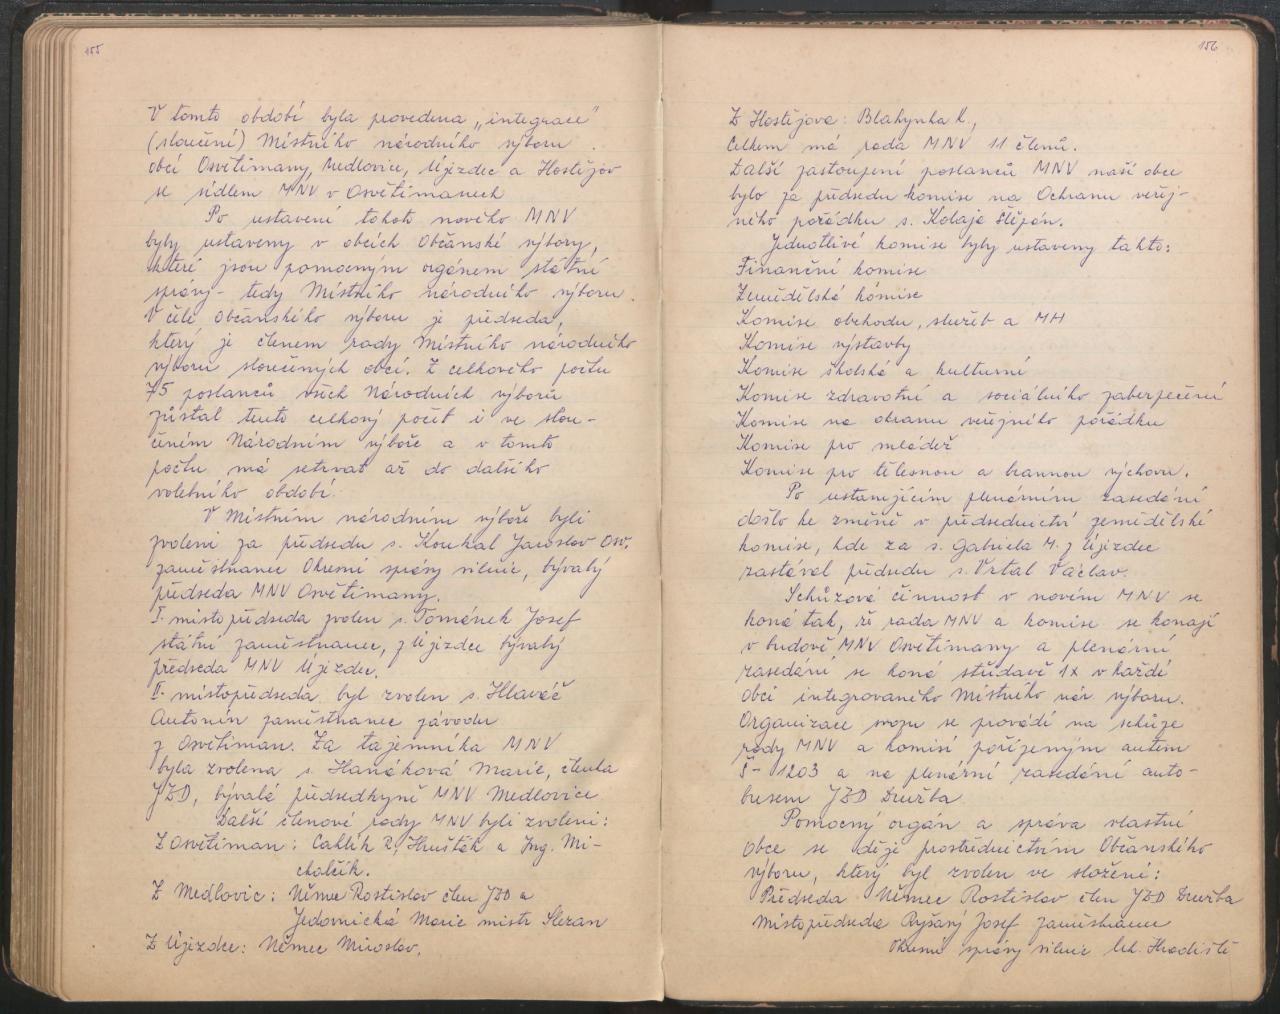 155
V tomto období byla provedena „integrace"
(sloučení) Místního národního výboru
obcí Osvětimany, Medlovice, Újezdec a Hostějov
se sídlem MNV v Osvětimanech
Po ustavení tohoto nového MNV
byly ustaveny v obcích Občanské výbory,
které jsou pomocným orgánem státní
správy - tedy Místního národního výboru.
V čele Občanského výboru je předseda,
který je členem rady Místního národního
výboru sloučených obcí. Z celkového počtu
75 poslanců všech Národních výborů
zůstal tento celkový počet i ve slou-
čeném Národním výboře a v tomto
počtu má setrvat až do dalšího
volebního období.
V Místním národním výboře byli
zvoleni za předsedu s. Koukal Jaroslav Osv.
zaměstnanec Okresní správy silnic, bývalý
předseda MNV Osvětimany.
I. místopředseda zvolen s. Tománek Josef
státní zaměstnanec, z Újezdce bývalý
předseda MNV Újezdec.
II. místopředseda byl zvolen s. Hlaváč
Antonín zaměstnanec závodu
z Osvětiman. Za tajemníka MNV
byla zvolena s. Hanáková Marie, členka
JZD, bývalá předsedkyně MNV Medlovice
Další členové rady MNV byli zvoleni:
Z Osvětiman: Caklík R, Hruštěk a Ing. Mi-
chalčík.
Z Medlovic: Němec Rostislav člen JZD a
Jedovnická Marie mistr Slezan
Z Újezdce: Němec Miroslav,
156
Z Hostějova: Blahynka K.,
Celkem má rada MNV 11 členů.
Další zastoupení poslanců MNV naší obce
bylo za předsedu komise na Ochranu veřej-
ného pořádku s. Kolaja Štěpán.
Jednotlivé komise byly ustaveny takto:
Finanční komise
Zemědělská komise
Komise obchodu, služeb a MH
Komise výstavby
Komise školská a kulturní
Komise zdravotní a sociálního zabezpečení
Komise na ochranu veřejného pořádku
Komise pro mládež
Komise pro tělesnou a brannou výchovu.
Po ustavujícím plenárním zasedání
došlo ke změně v předsednictví zemědělské
komise, kde za s. Gabriela M. z Újezdce
zastával předsedu s. Vrtal Václav.
Schůzová činnost v novém MNV se
koná tak, že rada MNV a komise se konají
v budově MNV Osvětimany a plenární
zasedání se koná střídavě 1x v každé
obci integrovaného Místního nár. výboru.
Organizace svozu se provádí na schůze
rady MNV a komisí pořízeným autem
Š-1203 a na plenární zasedání auto-
busem JZD Družba
Pomocný orgán a správa vlastní
obce se děje prostřednictvím Občanského
výboru, který byl zvolen ve složení:
Předseda Němec Rostislav člen JZD Družba
Místopředseda Ryšavý Josef zaměstnanec
Okresní správy silnic Uh. Hradiště